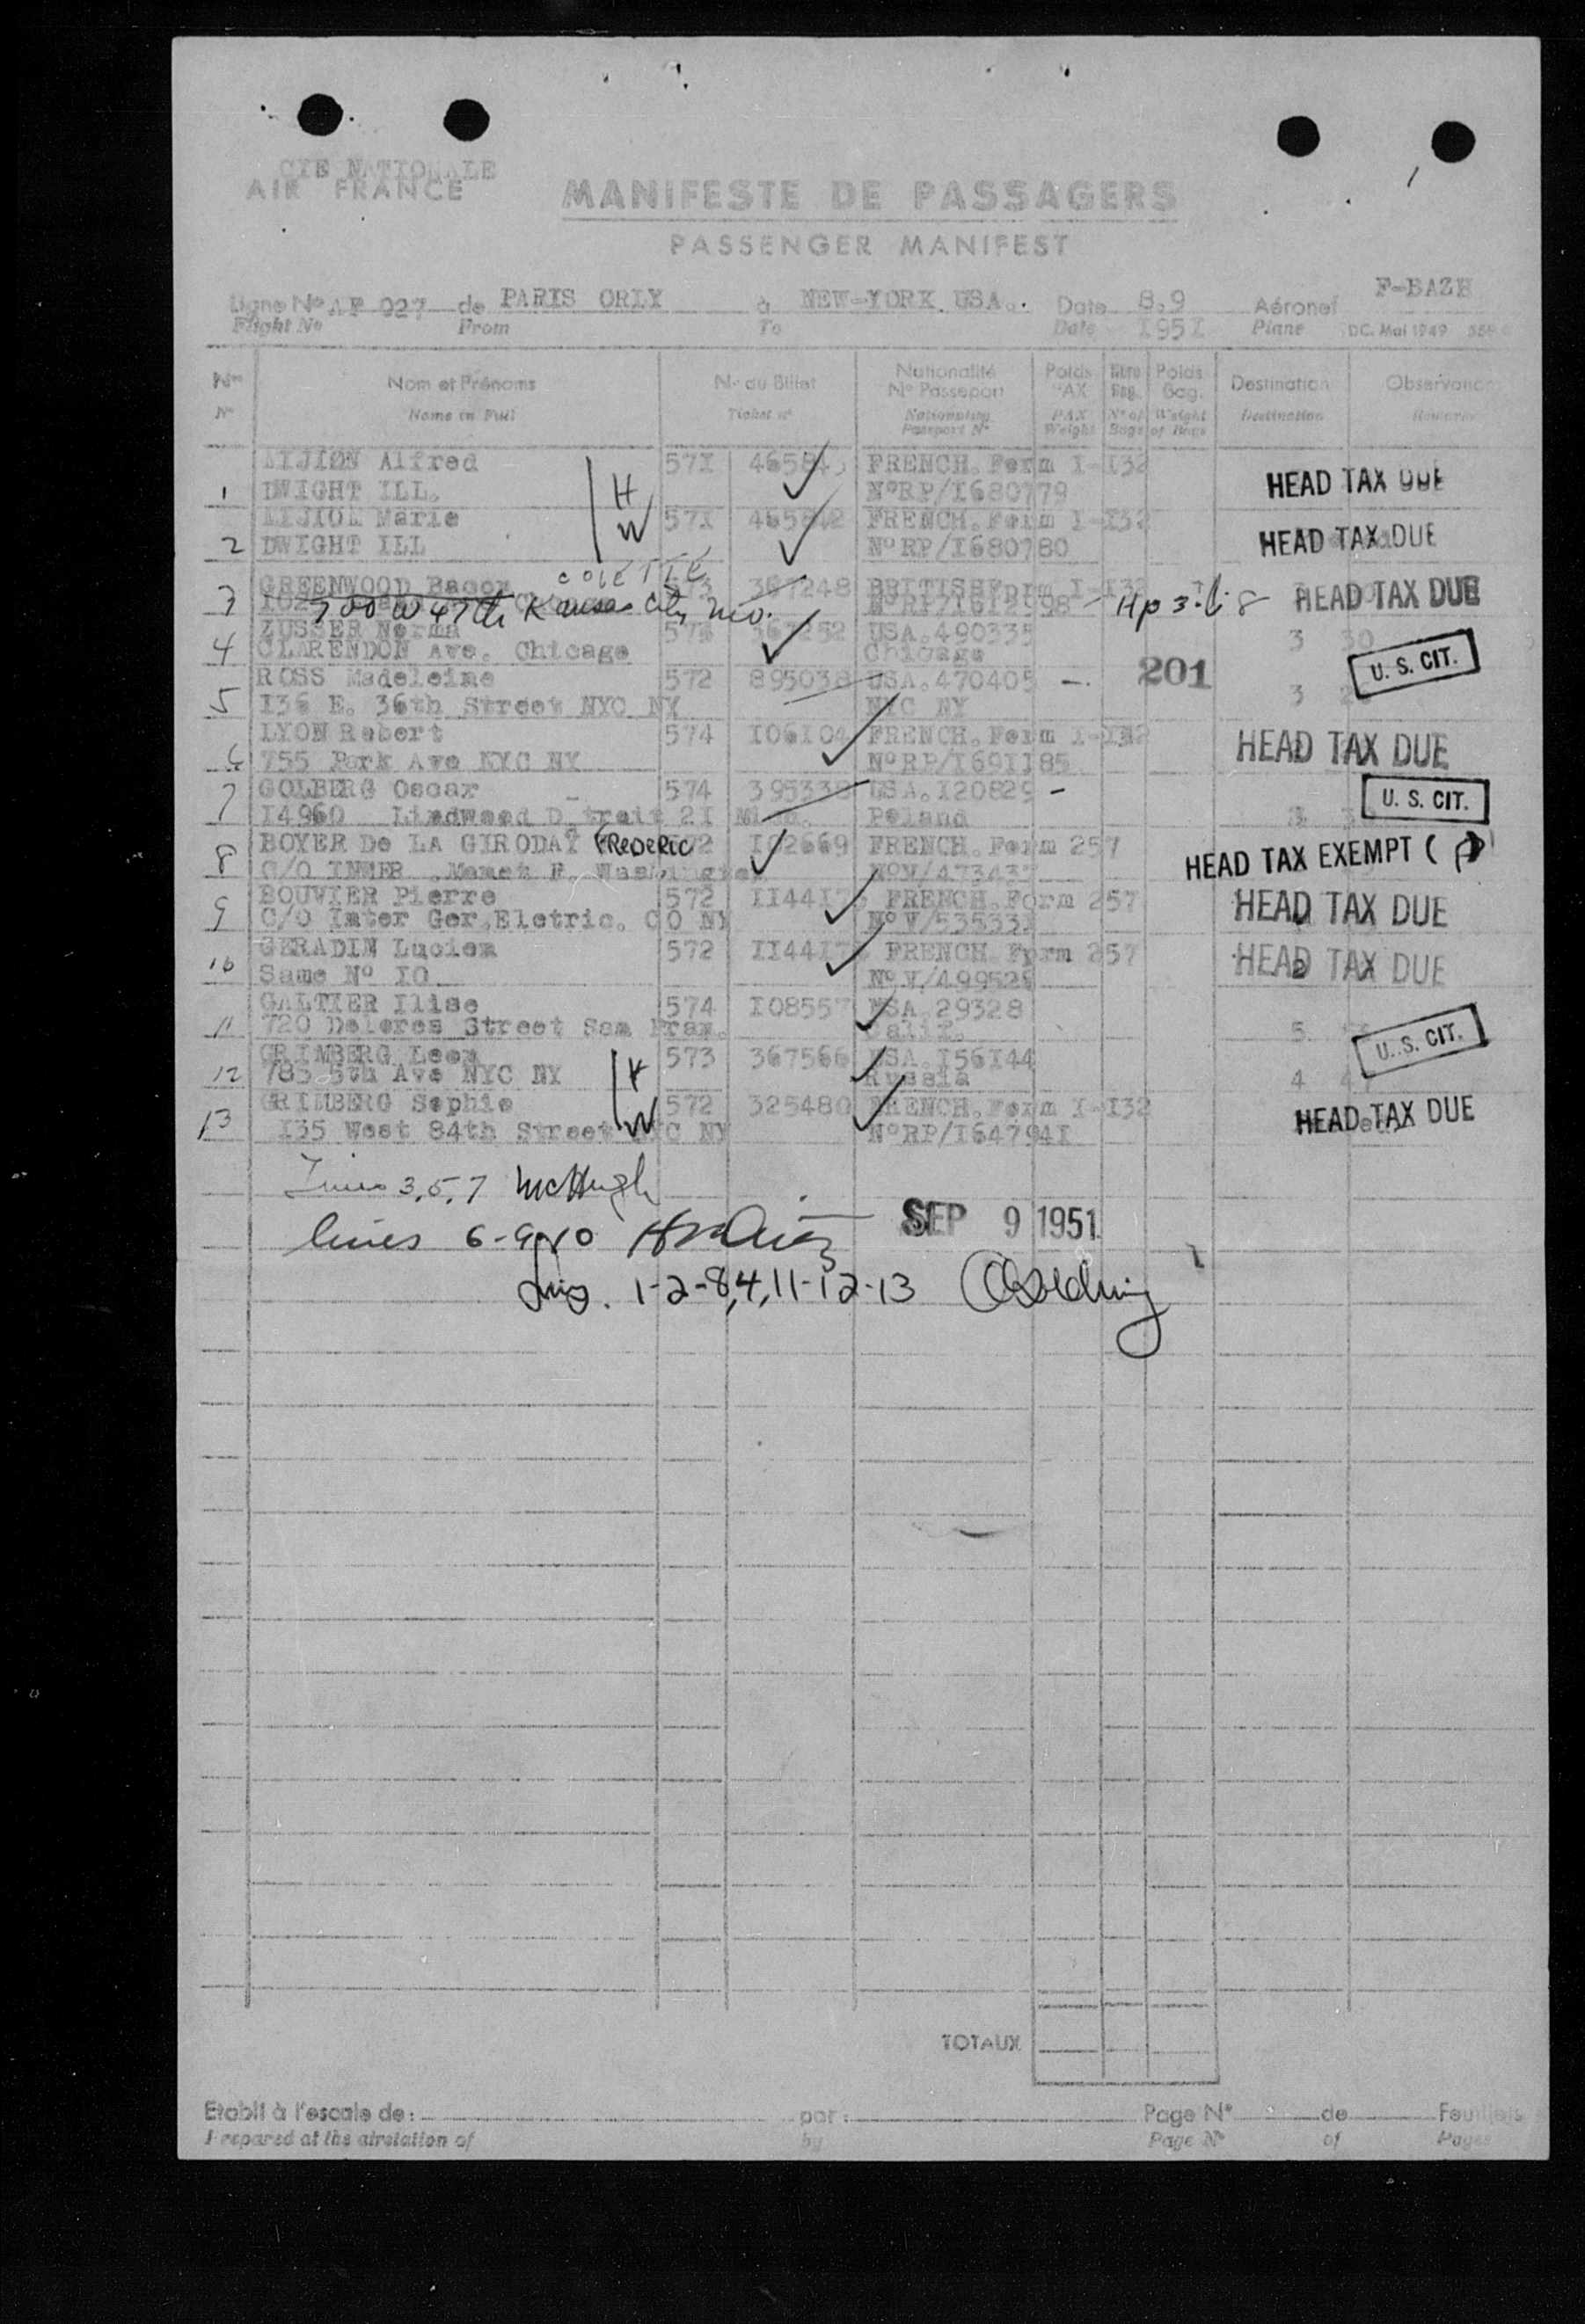 CIE NATIONALE
AIR FRANCE
MANIFESTE DE PASSAGERS
PASSENGER MANIFEST
Ligne No AF 027 de PARIS ORLY à NEW-YORK USA. Date 8.9 Aéronef F-BAZH
Flight No From To Date 1951 Plane DC. Mai 1949
Nos Nom et Prénoms No du Billet Nationalité No Passeport Poids PAX Nbre Bag. Poids Bag. Destination Observations
No Name in Full Ticket no Nationality Passport No PAX Weight No of Bags Weight of Bags Destination Remarks
Alfred H 571 FRENCH. Form I-I32 HEAD TAX DUE
1 DWIGHT ILL. NoRP/I680779
Marie W 571 FRENCH. Form I-I32
2 DWIGHT ILL NoRP/I680780 HEAD TAX DUE
COLETTE
3 GREENWOOD 573 367248 BRITISH Form I-I32 HEAD TAX DUE
700 W 47th Kansas City Mo. NoRP/I612998
ZUSSER Norma USA.490335 3 30
4 CLARENDON Ave. Chicago Chicago 201 U. S. CIT.
ROSS Madeleine 572 895038 USA.470405 -.
5 I36 E. 36th Street NYC NY NYC NY 3
LYON Robert 574 I06I04 FRENCH. Form I-I32 HEAD TAX DUE
6 755 Park Ave NYC NY NoRP/I691I85
7 GOLBERG Oscar 574 395338 USA.I20829 - U. S. CIT.
I4960 Lindwood D troit 2I Mich. Poland
8 BOYER De LA GIRODAY FREDERIC 572 I02669 FRENCH. Form 257 HEAD TAX EXEMPT (
C/O Washington NoV/47343
BOUVIER Pierre 572 II44I FRENCH. Form 257 HEAD TAX DUE
9 C/O Inter Ger.Eletric. CO NY NoV/53533
GERADIN Lucien 572 II44I7 FRENCH Form 257 HEAD TAX DUE
10 Same No IO No V/499528
GALTIER Ilise 574 I08557 USA 29328
11 720 Delores Street San Fran. Calif. 5 U. S. CIT.
GRIMBERG Leon H 573 367566 USA.I56I44
12 785 5th Ave NYC NY Russia 4
GRIMBERG Sophie W 572 325480 FRENCH. Form I-I32 HEAD TAX DUE
13 I35 West 84th Street NYC NY NoRP/I64794I
Lines 3,5,7 McHugh
lines 6-9-10 SEP 9 1951
Lines. 1-2-8,4,11-12-13
TOTAUX
Etabli à l'escale de: par: Page No de Feuillets
Prepared at the airstation of by Page No of Pages